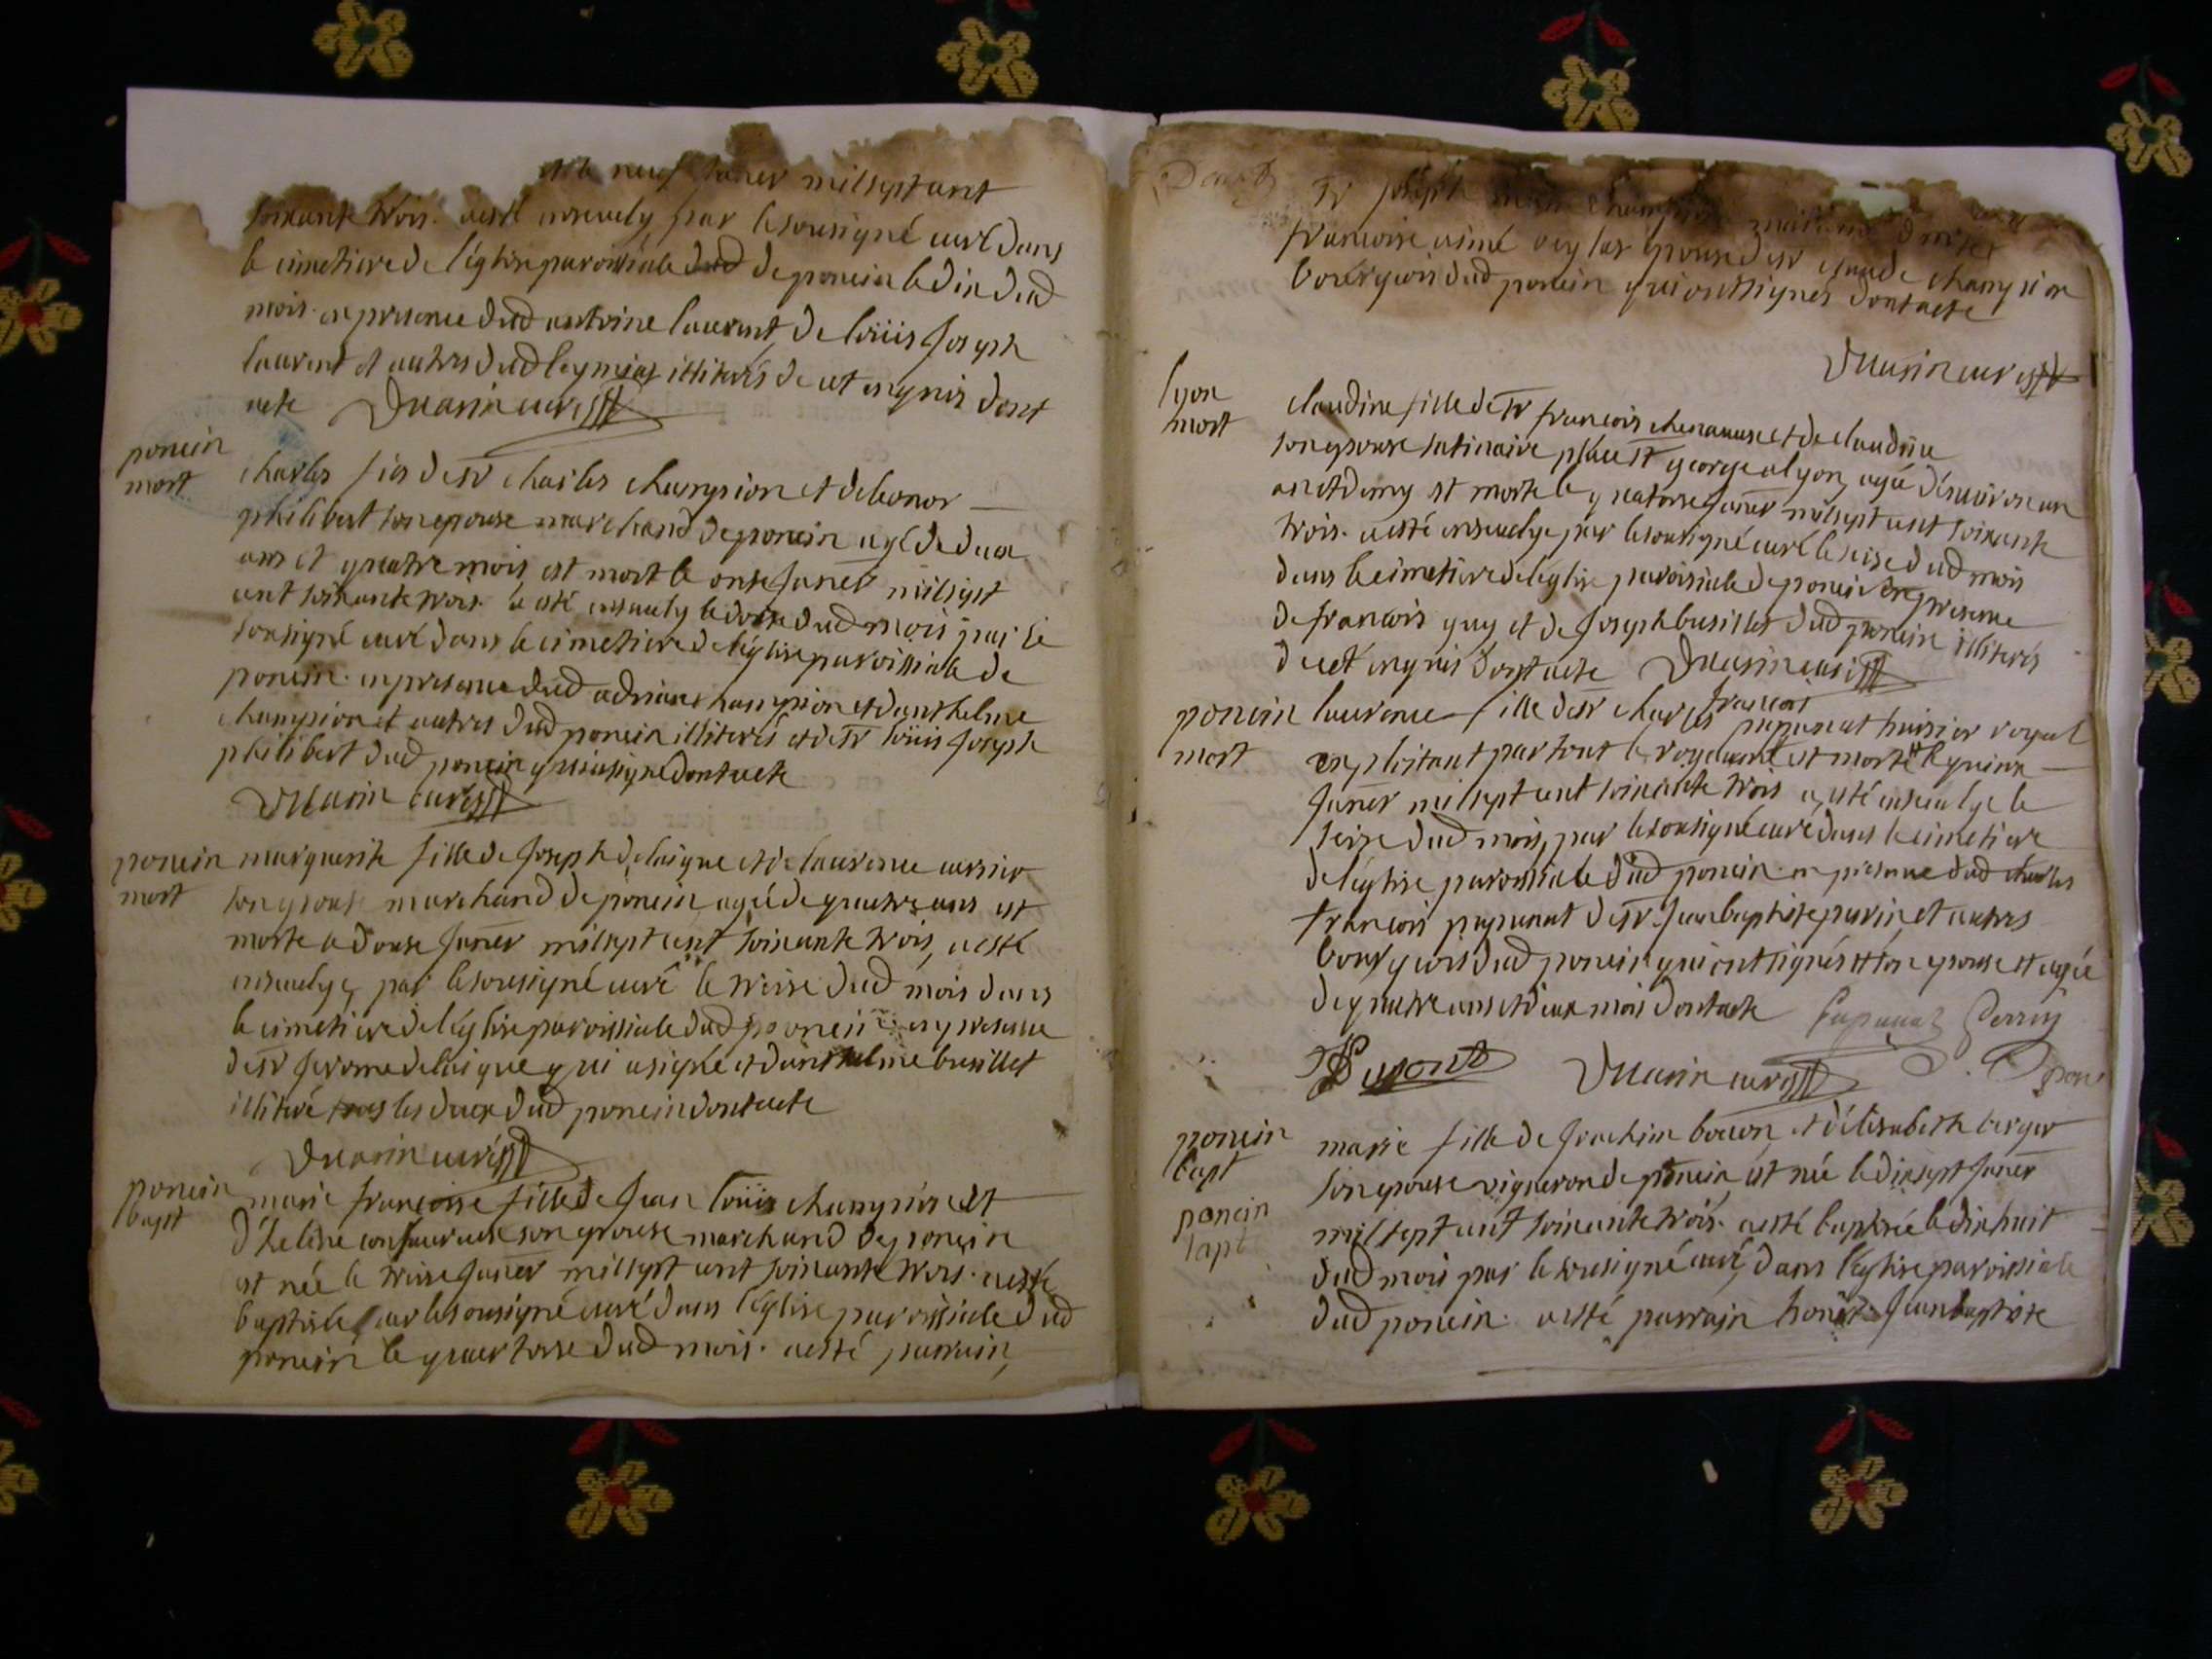 et le neuf janer mil sept cent
soixante trois. a esté ensevely par le sousigné curé dans
le cimetiere de l'église paroissiale de poncin le dix dud
mois. en presence dud antoine laurent, de loüis joseph
laurent et autres dud leymiat illiterés de cet enquis dont
acte Duarin curé
poncin
mort
charles fils de sr charles champion et de leonor
philibert son epouse marchand de poncin agé de deux
ans et quatre mois est mort le onze janer mil sept
cent soixante trois. a esté ensevely le douze dud mois par le
sousigné curé dans le cimetiere de l'église paroissiale de
poncin. en presence dud adrian champion et d'anthelme
champion et autres dud poncin illiterés et de sr loüis joseph
philibert dud poncin qui a signé dont acte
Duarin curé
poncin
mort
marguerite fille de joseph delaigue et de laurence
son epouse marchand de poncin agée de quatre ans est
morte le douze janer mil sept cent soixante trois, a esté
ensevelye par le sousigné curé le treize dud mois dans
le cimetiere de l'église paroissiale dud poncin en presence
de sr jerome delaigue qui a signé et d'anthelme busillet
illiteré tous les deux dud poncin dont acte
Duarin curé
poncin
bapt
marie françoise fille de jean loüis champion et
d'heline son epouse marchand de poncin
est née le treize janer mil sept cent soixante trois. a esté
baptisée par le sousigné curé dans l'église paroissiale dud
poncin le quatorze dud mois. a esté parrain,
sr joseph marie champion
françoise aimé epouse de sr claude champion
bourgeois dud poncin qui ont signés dont acte
Duarin curé
lyon
mort
claudine fille de sr françois et de claudine
son epouse satinaire place st george a lyon, agée d'environ un
an et demy est morte le quatorze janer mil sept cent soixante
trois. a esté ensevelye par le sousigné curé le seize dud mois
dans le cimetiere de l'église paroissiale de poncin en presence
de françois guy et de joseph busillet dud poncin illiterés
de cet enquis dont acte Duarin curé
poncin
mort
laurence fille de sr charles françois papunat huissier royal
exploitant par tout le royaume est morte le quinze
janer mil sept cent soixante trois a esté ensevelye le
seize dud mois, par le sousigné curé dans le cimetiere
de l'église paroissiale dud poncin. en presence dud charles
françois papunat de sr jean baptiste perrin, et autres
bourgeois dud poncin qui ont signés son epouse et agée
de quatre ans et deux mois dont acte Papunat Perrin
Duarin curé
poncin
bapt
poncin
bapt
marie fille de joachim bocon, et d'élisabeth berger
son epouse vigneron de poncin est née le dixsept janer
mil sept cent soixante trois. a esté baptisée le dixhuit
dud mois par le sousigné curé, dans l'église paroissiale
dud poncin. a esté parrain honēt jean baptiste